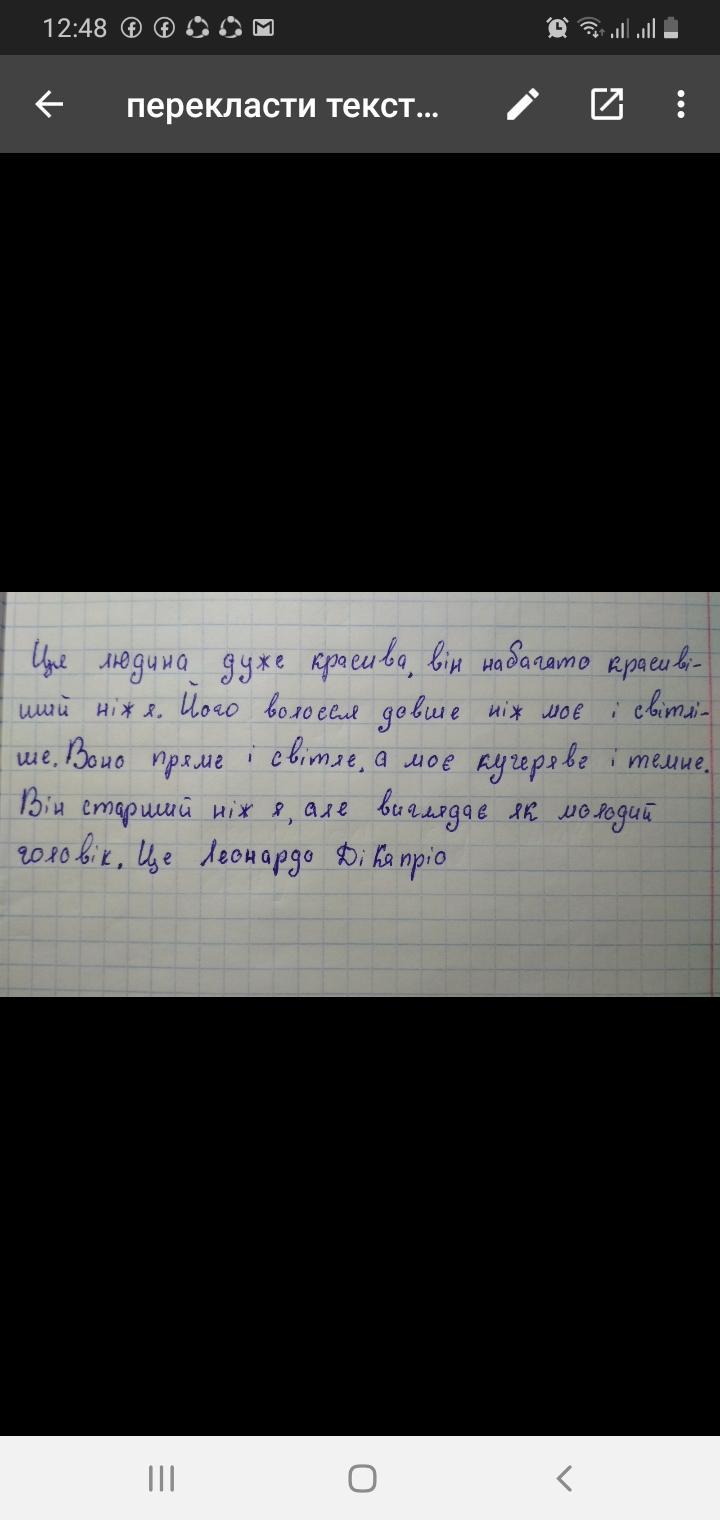 12:48
перекласти текст...
Ця людина дуже красива, він набагато красиві-
ший ніж я. Його волосся довше ніж моє і світлі-
ше. Воно пряме і світле, а моє кучеряве і темне.
Він старший ніж я, але виглядає як молодий
чоловік. Це Леонардо Ді Капріо